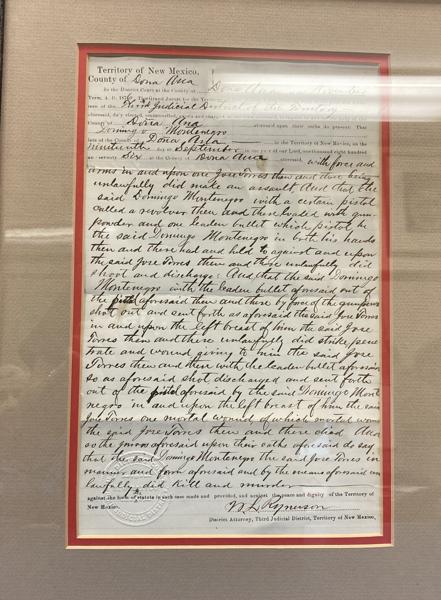 Territory of New Mexico,
County of Dona Ana
In the District Court at the County of Dona Ana November
Term, A. D. 1876. The Grand Jurors for the Territory
of the Third Judicial District of the Territory
aforesaid, duly elected, empanelled, sworn and
County of Dona Ana aforesaid upon their oaths do present That
Domingo Montenegro
late of the County of Dona Ana in the Territory of New Mexico, on the
nineteenth day of September in the year of our Lord, one thousand eight hundred
and seventy Six at the County of Dona Ana aforesaid, with force and
arms in and upon one Jose Torres then and there being
unlawfully did make an assault And that the
said Domingo Montenegro with a certain pistol
called a revolver then and there loaded with gun
powder and one leaden bullet which pistol he
the said Domingo Montenegro in both his hands
then and there had and held to against and upon
the said Jose Torres then and there unlawfully did
shoot and discharge: And that the said Domingo
Montenegro with the leaden bullet aforesaid out of
the pistol aforesaid then and there by force of the gunpowder
shot out and sent forth as aforesaid the said Jose Torres
in and upon the left breast of him the said Jose
Torres then and there unlawfully did strike pene
trate and wound giving to him the said Jose
Torres then and there with the leaden bullet aforesaid
so as aforesaid shot discharged and sent forth
out of the pistol aforesaid by the said Domingo Mont
negro in and upon the left breast of him the said
Jose Torres one mortal wound of which mortal wound
the said Jose Torres then and there died And
so the jurors aforesaid upon their oaths aforesaid do say
that the said Domingo Montenegro the said Jose Torres in
manner and form aforesaid and by the means aforesaid un
lawfully did kill and murder
against the form of statute in such case made and provided, and against the peace and dignity of the Territory of
New Mexico.
W. L. Rynerson
District Attorney, Third Judicial District, Territory of New Mexico.